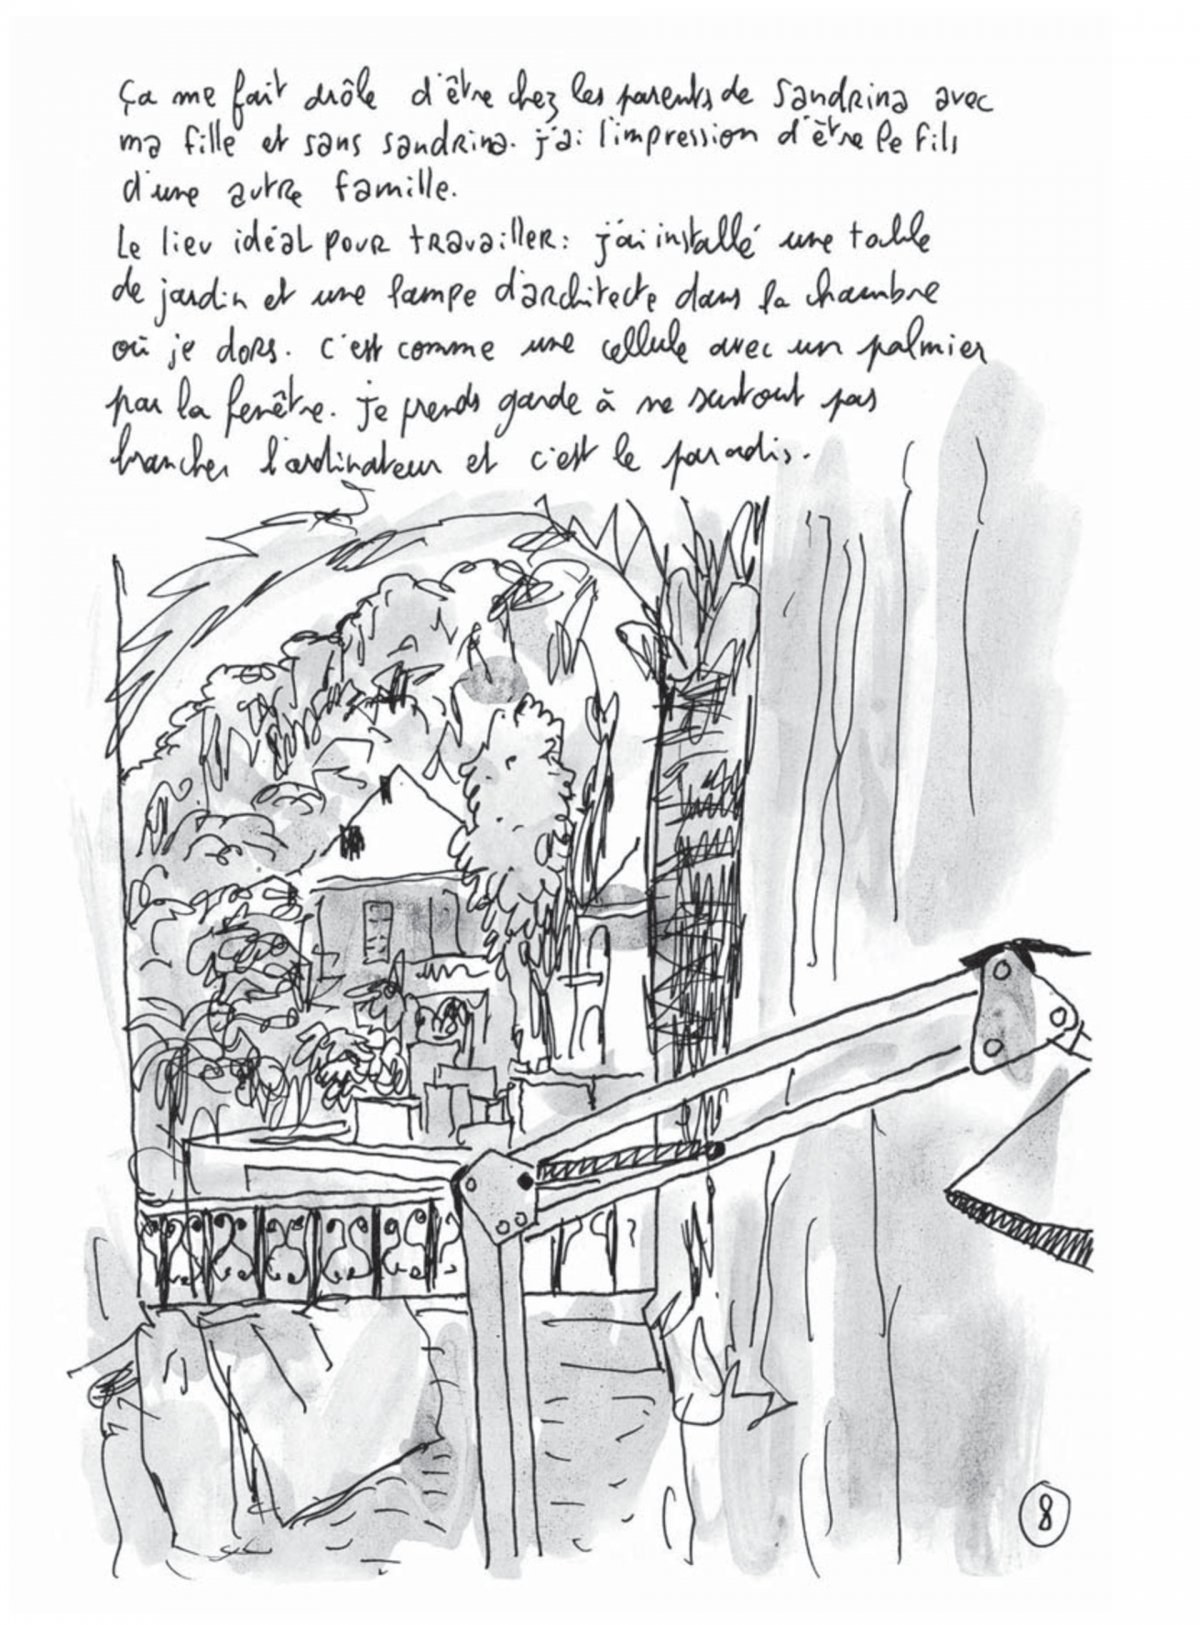 Ça me fait drôle d'être chez les parents de Sandrina avec
ma fille et sans Sandrina. j'ai l'impression d'être le fils
d'une autre famille.
Le lieu idéal pour travailler : j'ai installé une table
de jardin et une lampe d'architecte dans la chambre
où je dors. c'est comme une cellule avec un palmier
par la fenêtre. je prends garde à ne surtout pas
brancher l'ordinateur et c'est le paradis.
8